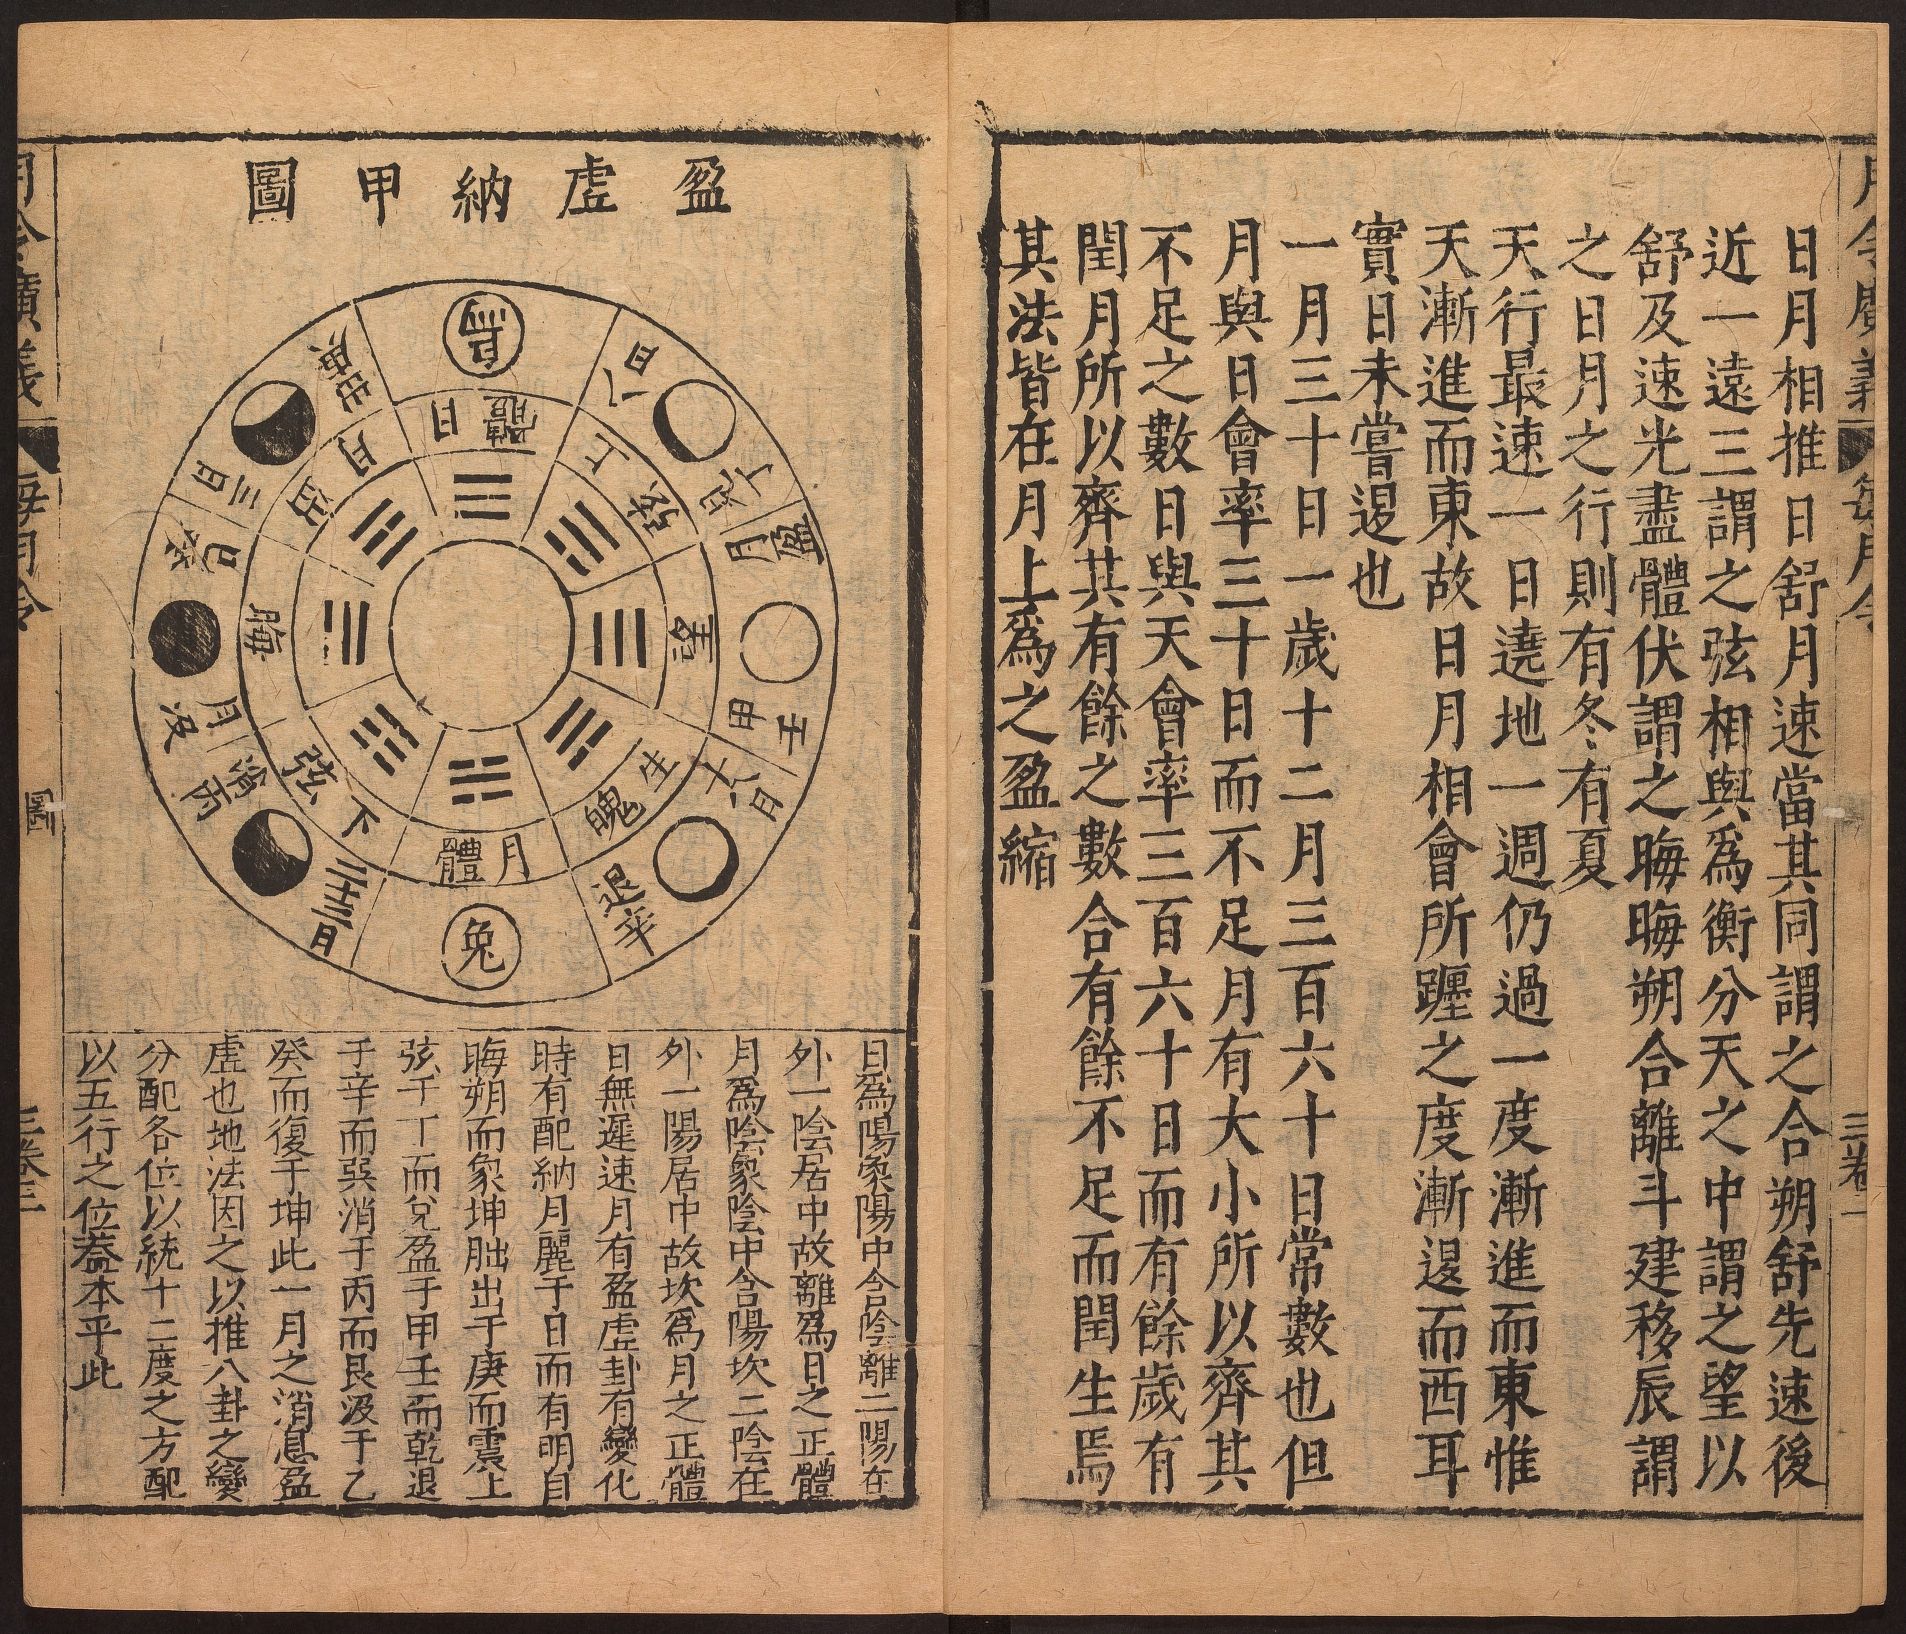 月令廣義
每月令
日月相推日舒月速當其同謂之合朔舒先速後
近一遠三謂之弦相與爲衡分天之中謂之望以
舒及速光盡體伏謂之晦晦朔合離斗建移辰謂
之日月之行則有冬有夏
天行最速一日遶地一週仍過一度漸進而東惟
天漸進而東故日月相會所躔之度漸退而西耳
實日未嘗退也
一月三十日一歲十二月三百六十日常數也但
月與日會率三十日而不足月有大小所以齊其
不足之數日與天會率三百六十日而有餘歲有
閏月所以齊其有餘之數合有餘不足而閏生焉
其法皆在月上爲之盈縮
盈虛納甲圖
烏
月體
八日
上弦
丁
盈月
望
甲壬
十六日
生魄
退辛
兔
月體
二十三日
下弦
消丙
月沒
晦
三日
月
出庚
日爲陽象陽中含陰離二陽在
外一陰居中故離爲日之正體
月爲陰象陰中含陽坎二陰在
外一陽居中故坎爲月之正體
日無遲速月有盈虛卦有變化
時有配納月麗于日而有明自
晦朔而象坤朏出于庚而震上
弦于丁而兌盈于甲壬而乾退
于辛而巽消于丙而艮沒于乙
癸而復于坤此一月之消息盈
虛也地法因之以推八卦之變
分配各位以統十二度之方配
以五行之位葢本乎此
月令廣義
每月令
圖